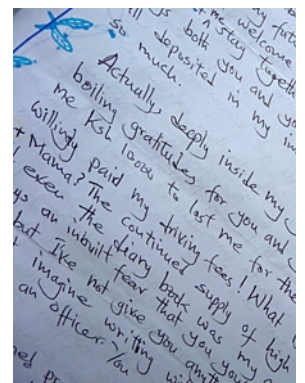 my futu
me welcome
all us both you and yo
so ^ stay togeth
deposited in my in
much.
Actually, deeply inside my
boiling gratitudes for you and
me Ksh 1000 to last me for the
willingly paid my driving fees! What
+ Mama? The continued supply of high
even the diary book was my
ys an inbuilt fear that you you
but I've not give you anyth
imagine writing wit
an officer. You
ned pr